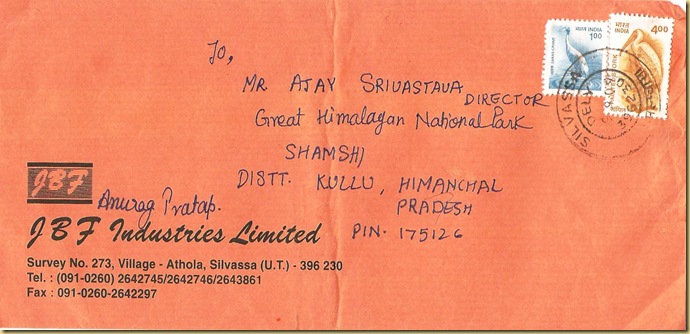 To,
MR AJAY SRIVASTAVA
DIRECTOR
Great Himalayan National Park
SHAMSHI
DISTT. KULLU, HIMANCHAL
PRADESH
PIN- 175126
भारत INDIA
1.00
भारत INDIA
4.00
SILVASSA
JBF
Anurag Pratap.
JBF Industries Limited
Survey No. 273, Village - Athola, Silvassa (U.T.) - 396 230
Tel. : (091-0260) 2642745/2642746/2643861
Fax : 091-0260-2642297